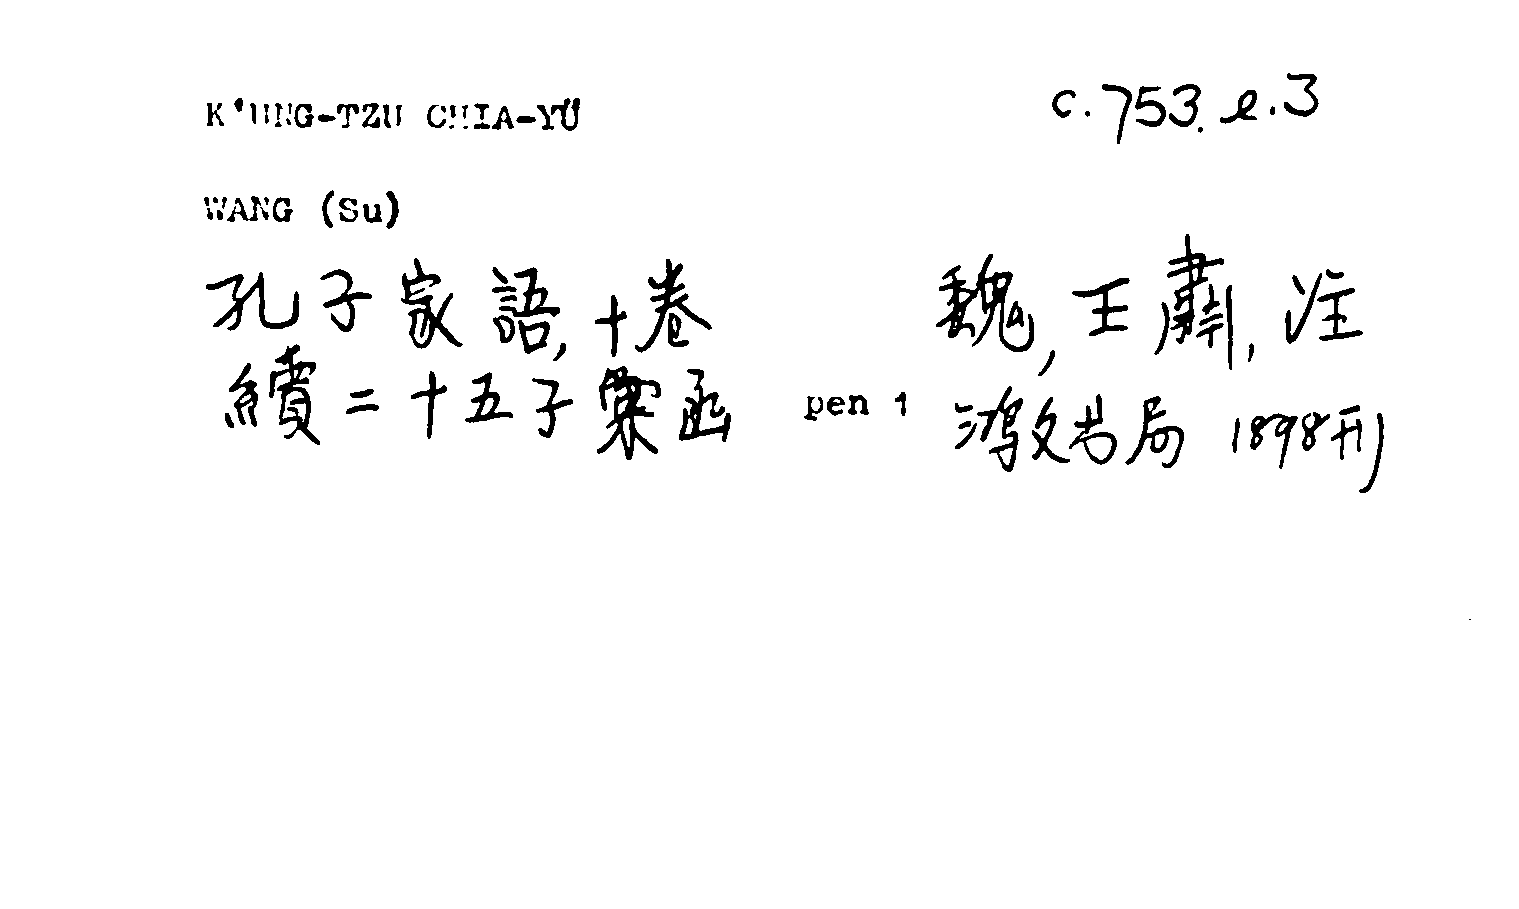 K'UNG-TZU CHIA-YÜ c.753.e.3
WANG (Su)
孔子家語,十卷 魏,王肅,注
續二十五子彙函 pen 1 鸿文书局 1898刊